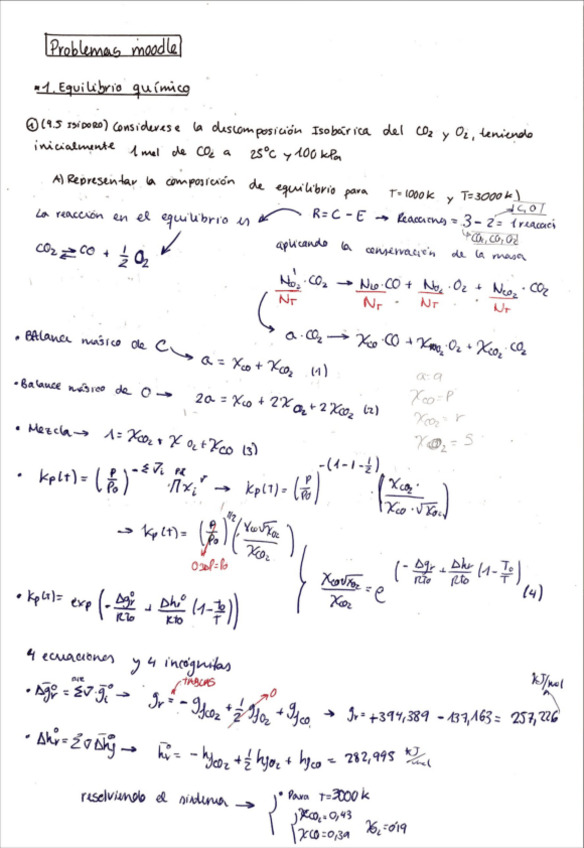 Problemas moodle
*1. Equilibrio químico
① (9.5 ISIDORO) Considerese la descomposición Isobárica del CO₂ y O₂, teniendo
inicialmente 1 mol de CO₂ a 25°C y 100 kPa
A) Representar la composición de equilibrio para T=1000K y T=3000K)
La reacción en el equilibrio es ↙ R=C-E → Reacciones = 3-2 = 1 reacción
C, O
CO, CO₂, O₂
CO₂ ⇄ CO + 1/2 O₂
aplicando la conservación de la masa
CO₂ → N_CO/N_T · CO + N_O₂/N_T · O₂ + N_CO₂/N_T · CO₂
a·CO₂ → X_CO·CO + X_O₂·O₂ + X_CO₂·CO₂
• BAlance másico de C → a = X_CO + X_CO₂ (1)
a=a
• Balance másico de O → 2a = X_CO + 2X_O₂ + 2X_CO₂ (2)
X_CO=P
X_CO₂=r
• Mezcla → 1 = X_CO₂ + X_O₂ + X_CO (3)
• Kp(t) = (P/P₀) → Kp(t) = (P/P₀)^-(1-1-1/2) · (X_CO₂ / X_CO·√X_O₂)
→ Kp(t) = (P/P₀)^1/2 (X_CO√X_O₂ / X_CO₂)
X_CO√X_O₂ / X_CO₂ = e^(-Δgr/RT₀ + Δhr/RT₀ (1-T₀/T)) (4)
• Kp(t) = exp(-Δgr°/RT₀ + Δhr°/RT₀ (1-T₀/T))
4 ecuaciones y 4 incógnitas
TABLAS
0
kJ/mol
• Δgr° = Σν·gi° → gr = -gfCO₂ + 1/2 gfO₂ + gfCO → gr = +394,389 - 137,163 = 257,226
• Δhr° = Σν Δhf → hr = -hfCO₂ + 1/2 hfO₂ + hfCO = 282,995 kJ/mol
resolviendo el sistema → • Para T=3000K
X_CO₂=0,43
X_CO=0,39 X_O₂=0'19